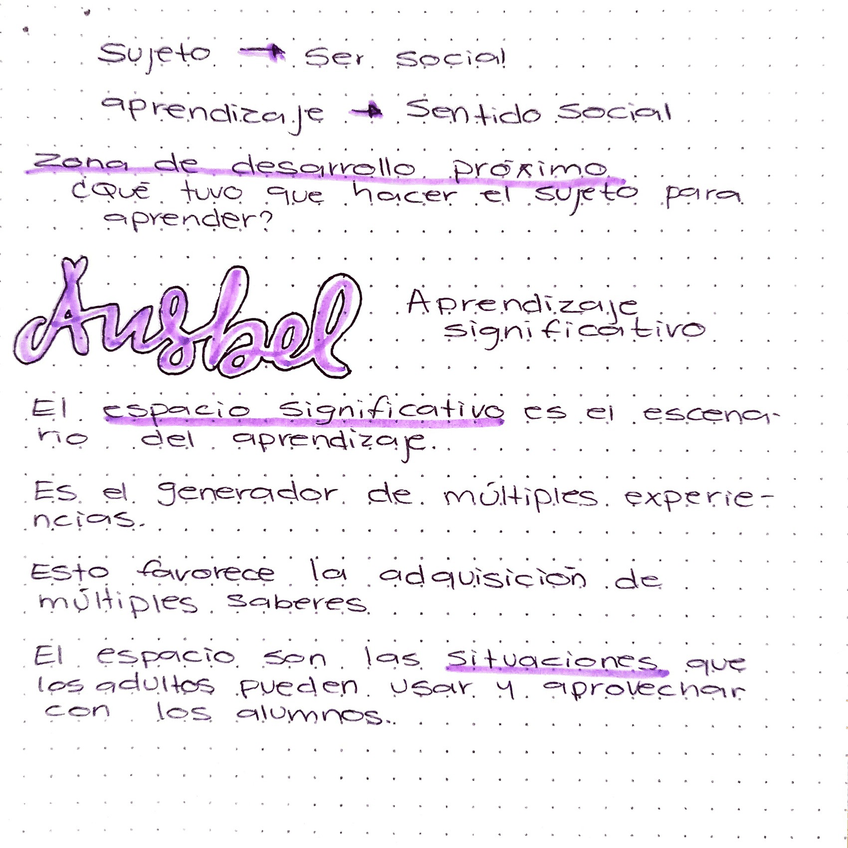 Sujeto → Ser social
aprendizaje → Sentido social
Zona de desarrollo próximo
¿Qué tuvo que hacer el sujeto para
aprender?
Ausbel
Aprendizaje
significativo
El espacio significativo es el escena-
rio del aprendizaje.
Es el generador de múltiples experie-
ncias.
Esto favorece la adquisición de
múltiples saberes.
El espacio son las situaciones que
los adultos pueden usar y aprovechar
con los alumnos.